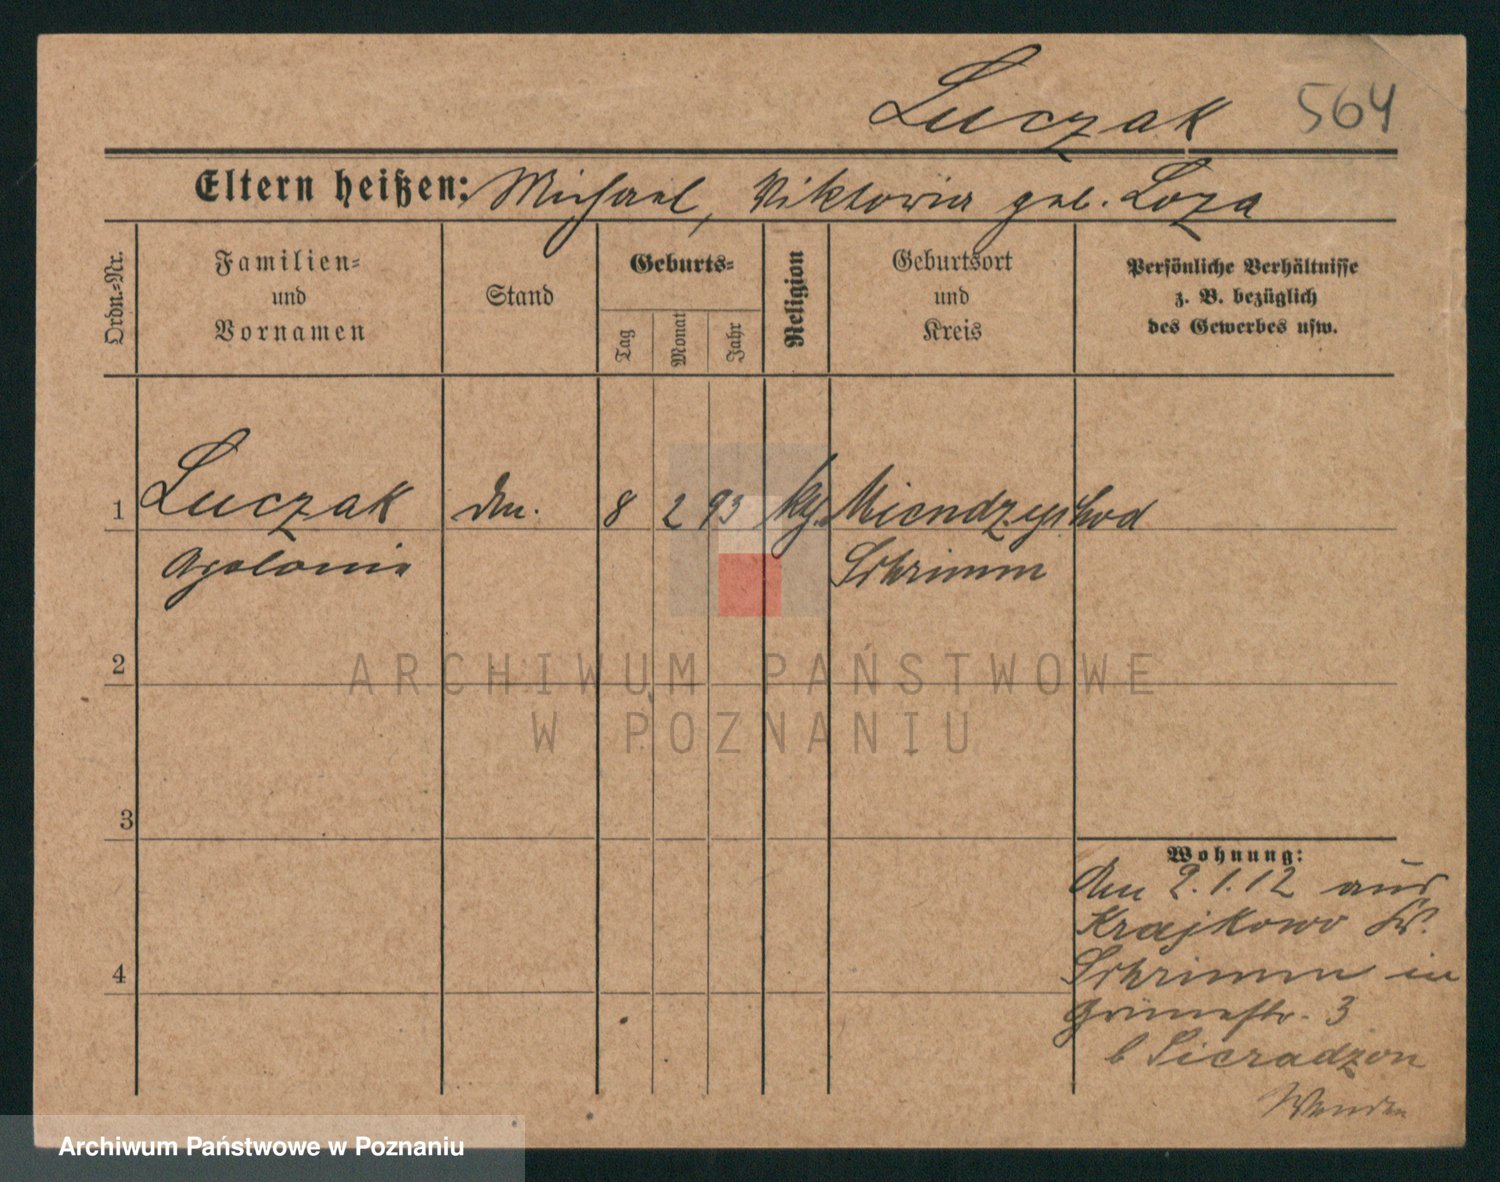 Luczak 564
Eltern heißen: Michael, Viktoria geb. Loza
Ordn.-Nr.
Familien-
und
Vornamen
Stand
Geburts-
Tag
Monat
Jahr
Religion
Geburtsort
und
Kreis
Persönliche Verhältnisse
z. B. bezüglich
des Gewerbes usw.
1 Luczak 8 2 93 Miendzychod
Apolonia Schrimm
2
ARCHIWUM PAŃSTWOWE
W POZNANIU
3
Wohnung:
Am 2.1.12 aus
Krajkowo Kr.
Schrimm in
4
Grünestr. 3
b Sieradzon
Archiwum Państwowe w Poznaniu